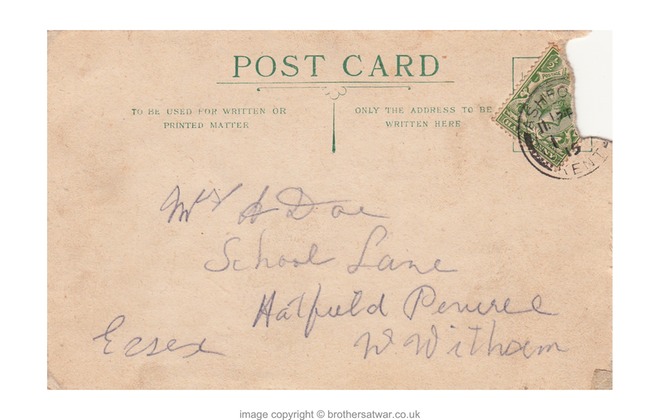 POST CARD
TO BE USED FOR WRITTEN OR
PRINTED MATTER
ONLY THE ADDRESS TO BE
WRITTEN HERE
ASHFO
15
KENT
Mr A Doe
School Lane
Hatfield Peverel
Essex
W Witham
image copyright © brothersatwar.co.uk